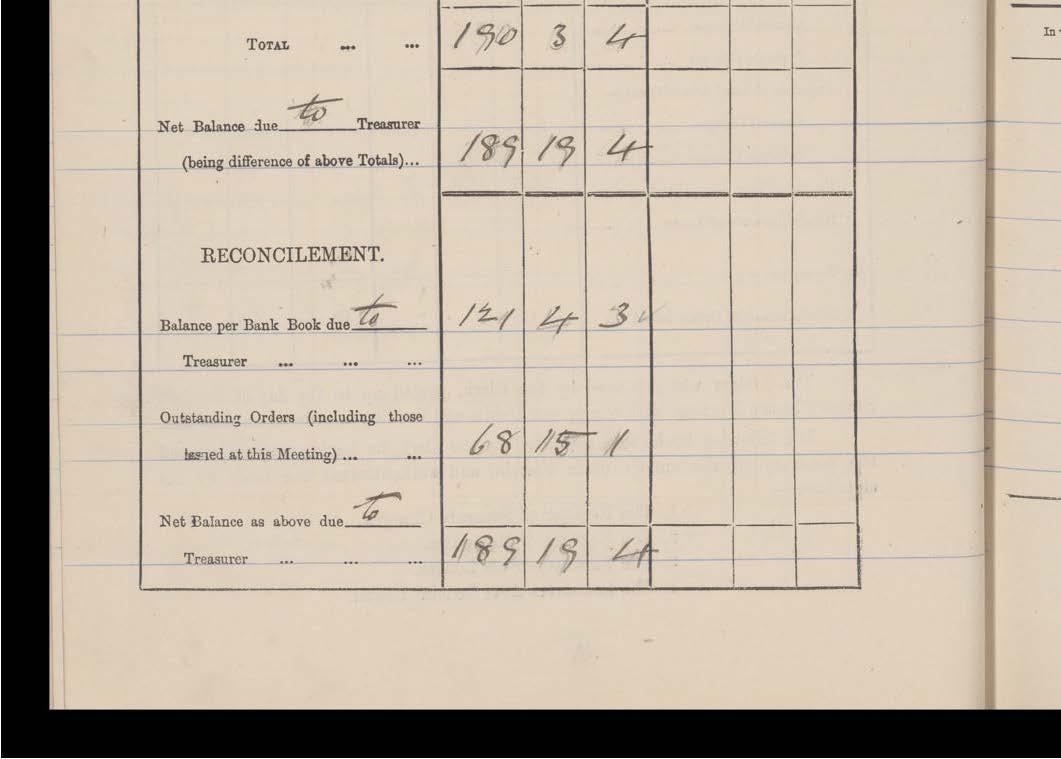 TOTAL ... ... 190 3 4
Net Balance due to Treasurer
(being difference of above Totals)... 189 19 4
RECONCILEMENT.
Balance per Bank Book due to 121 4 3
Treasurer ... ... ...
Outstanding Orders (including those
issued at this Meeting) ... ... 68 15 1
Net Balance as above due to
Treasurer ... ... ... 189 19 4
In